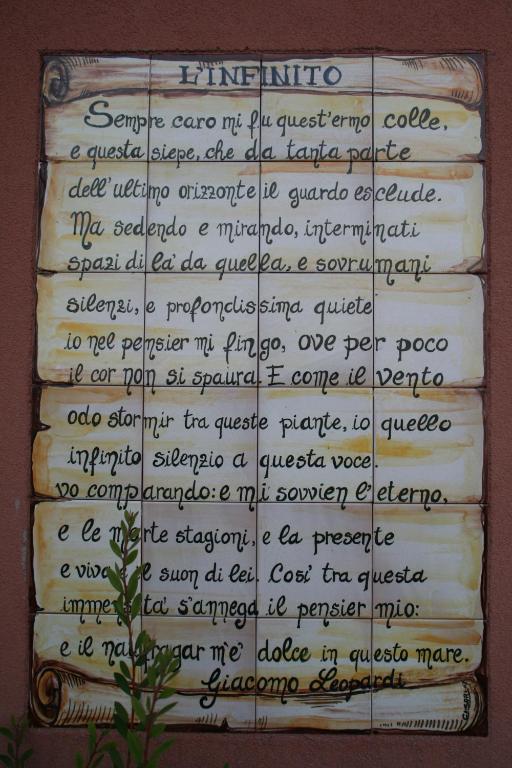 L'INFINITO
Sempre caro mi fu quest'ermo colle,
e questa siepe, che da tanta parte
dell'ultimo orizzonte il guardo esclude.
Ma sedendo e mirando, interminati
spazi di la' da quella, e sovrumani
silenzi, e profondissima quiete
io nel pensier mi fingo, ove per poco
il cor non si spaura. E come il vento
odo stormir tra queste piante, io quello
infinito silenzio a questa voce
vo comparando: e mi sovvien l'eterno,
e le morte stagioni, e la presente
e viva, e il suon di lei. Cosi' tra questa
immensita' s'annega il pensier mio:
e il naufragar m'e' dolce in questo mare.
Giacomo Leopardi